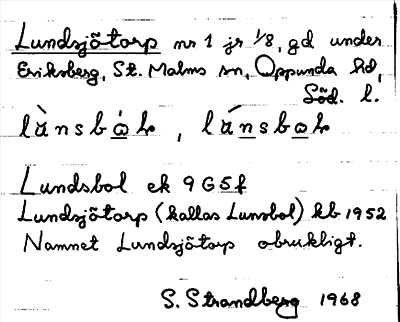 Lundsjötorp nr 1 jr 1/8, gd under
Eriksberg, St. Malms sn, Oppunda hd,
Söd. l.
Lundsbol ek 9G5f
Lundsjötorp (kallas Lunsbol) kb 1952
Namnet Lundsjötorp obrukligt.
S. Strandberg 1968